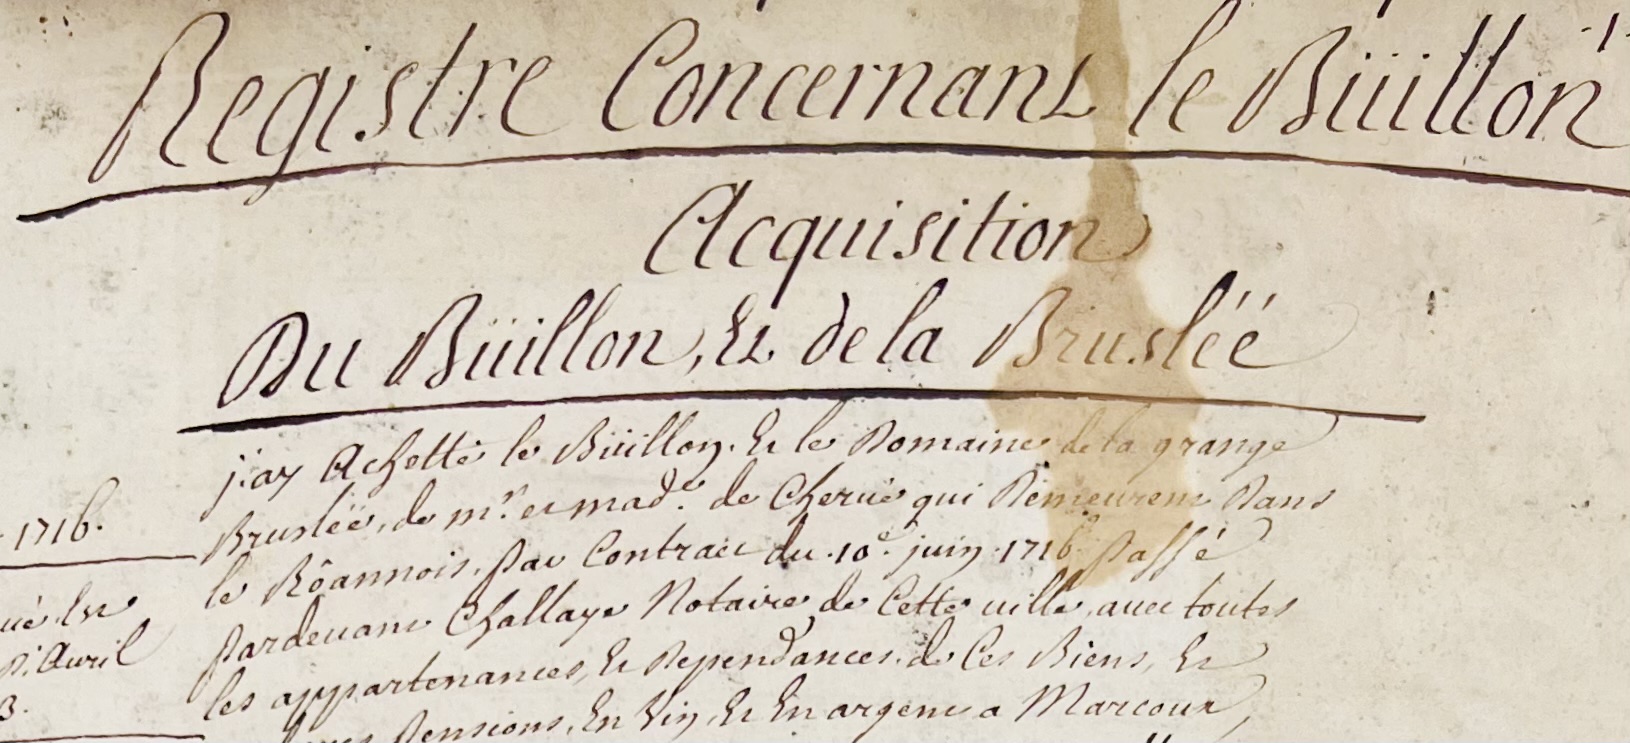 .1.
Registre Concernant le Büillon
Acquisition
Du Büillon, Et de la Brusléé
j'ay Achetté le Büillon. Et le Domaine de la grange
Brusléë, de mr. et made. de Cheruié qui Demeurent Dans
1716.
le Rôannois, par Contract du .10e. juin .1716. passé
pardeuant Challaye Notaire de Cette uille, auec toutes
Est
les appartenances, Et Dependances de Ces Biens, Et
Auril
pensions, En Vin, Et En argent a Marcoux,
3.